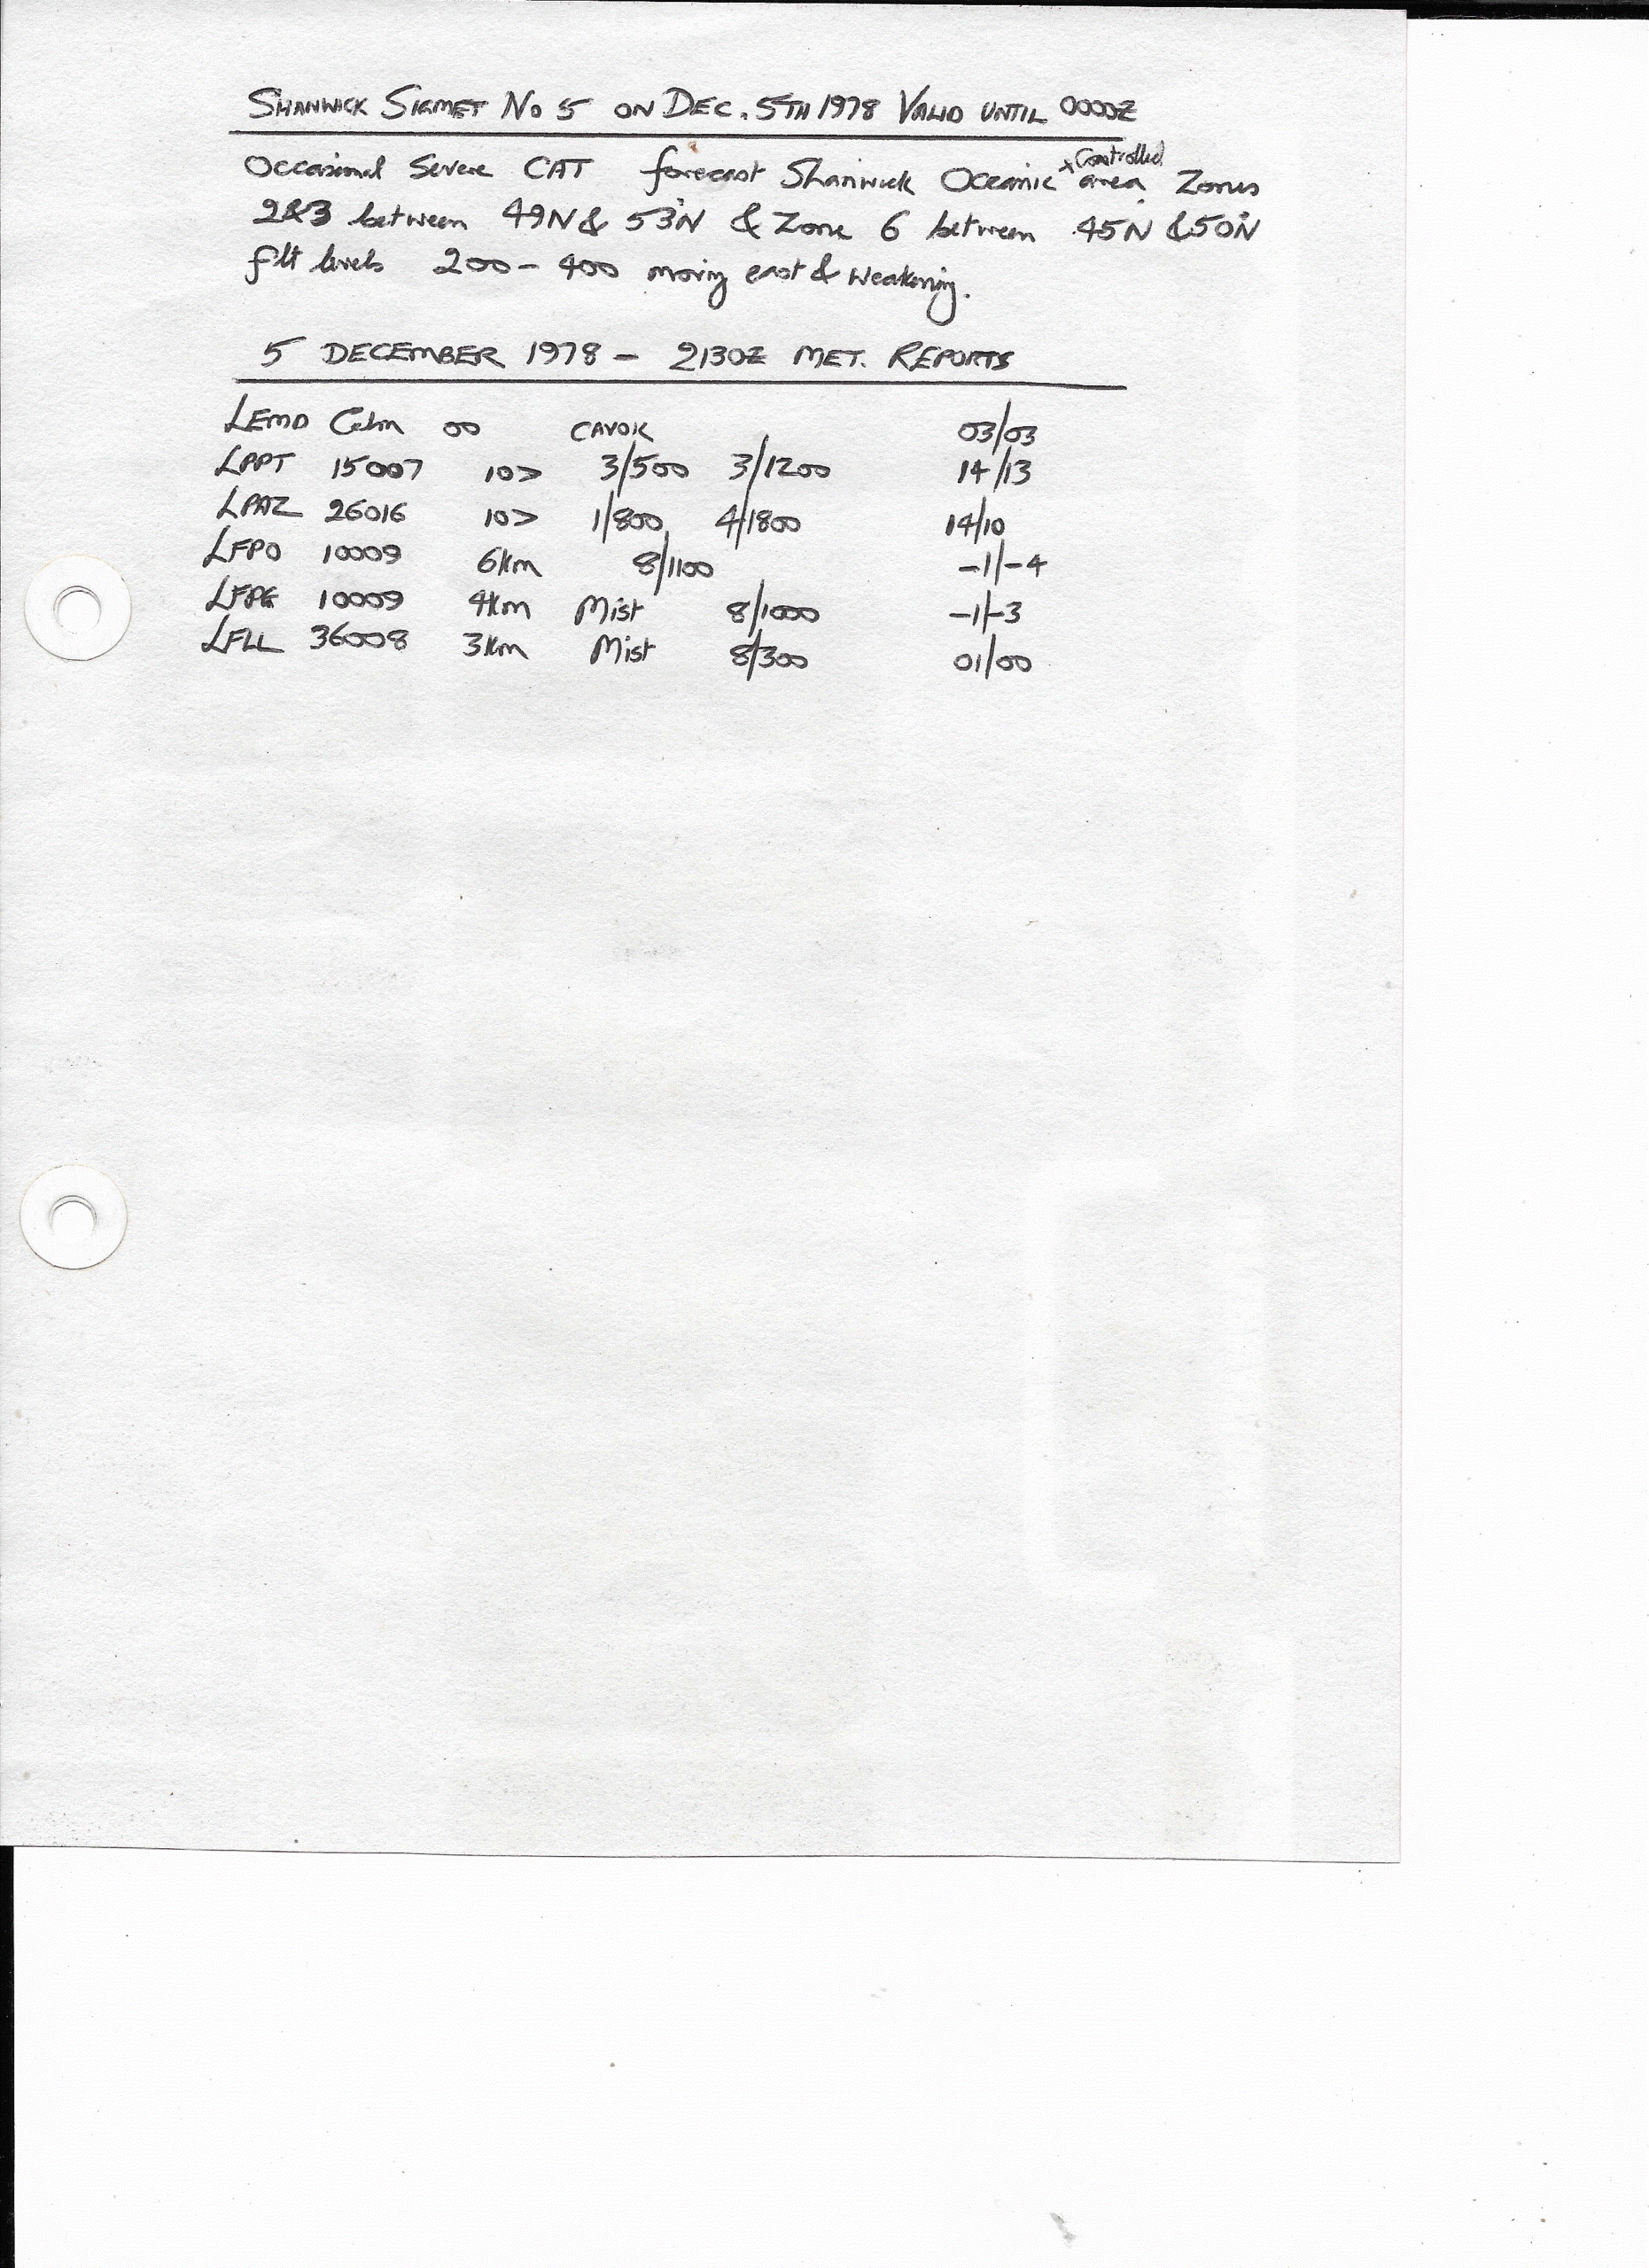 SHANWICK SIGMET No 5 ON DEC. 5TH 1978 VALID UNTIL 0000Z
Occasional Severe CAT forecast Shanwick Oceanic x Controlled area Zones
2&3 between 49N & 53N & Zone 6 between 45N & 50N
flt levels 200 - 400 moving east & weakening.
5 DECEMBER 1978 - 2130Z MET. REPORTS
LEMD Calm 00 CAVOK 03/03
LPPT 15007 10> 3/500 3/1200 14/13
LPAZ 26016 10> 1/800 4/1800 14/10
LFPO 10009 6km 8/1100 -1/-4
LFPG 10009 4km Mist 8/1000 -1/-3
LFLL 36008 3km Mist 8/300 01/00